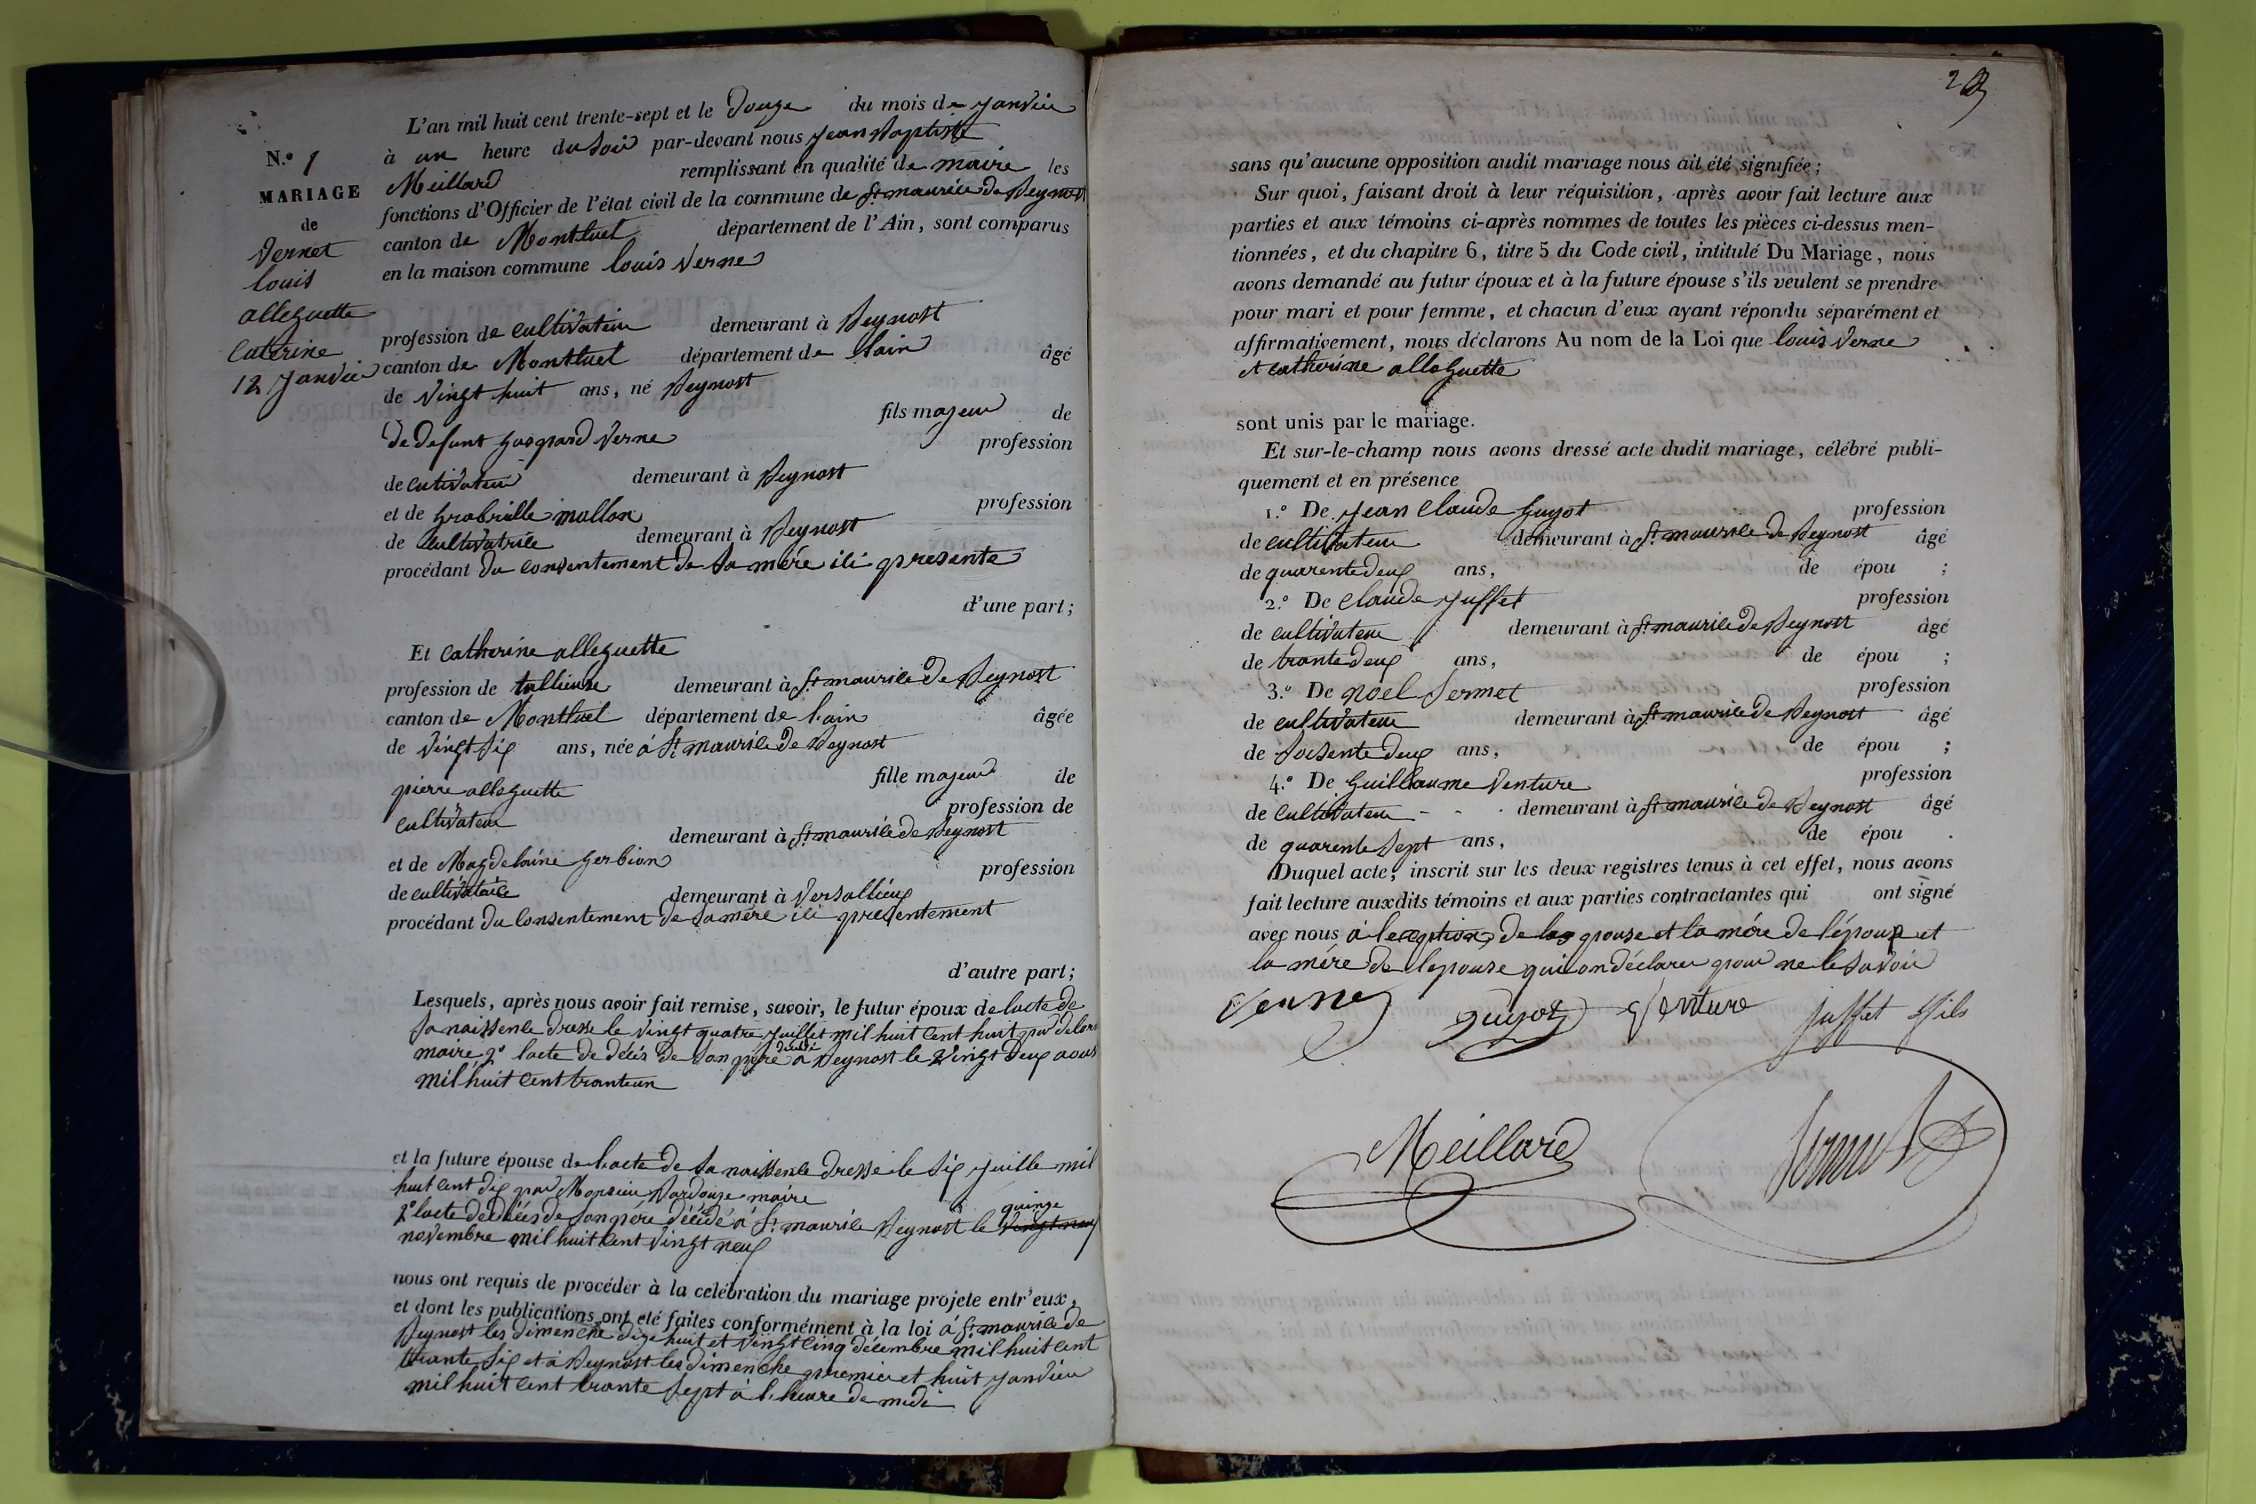 N.º 1
MARIAGE
de
Vernet
louis
alleguette
Caterine
12 Janvier
L'an mil huit cent trente-sept et le Douze du mois de Janvier
à un heure du soir par-devant nous Jean Baptiste
Meillard remplissant en qualité de maire les
fonctions d'Officier de l'état civil de la commune de St maurice de Beynost
canton de Montluel département de l'Ain, sont comparus
en la maison commune louis Verne
profession de cultivateur demeurant à Beynost
canton de Montluel département de lain âgé
de vingt huit ans, né Beynost
fils majeur de
de defunt gaspard Verne profession
de cutivateur demeurant à Beynost
et de grabrielle mollon profession
de cultivatrice demeurant à Beynost
procédant du consentement de sa mére ici presente
d'une part;
Et catherine alleguette
profession de tallieuse demeurant à St maurice de Beynost
canton de Montluel département de l.ain âgée
de vingt six ans, née á St maurice de Beynost
fille majeur de
pierre alleguette profession de
cultivateur demeurant à St maurice de Beynost
et de Magdelaine gerbion profession
de cultivatrice demeurant à Versallieux
procédant du consentement de sa mére ici presentement
d'autre part;
Lesquels, après nous avoir fait remise, savoir, le futur époux de lacte de
sa naissence dresse le vingt quatre juillet mil huit cent huit par delors
maire 2º lacte de décès de son père décédé à Beynost le vingt deux aout
mil huit cent trante un
et la future épouse de l.acte de sa naissence dressé le six juille mil
huit cent dix par Monsieur Bardouze maire
2º lacte de décés de son pére décédé á St maurice Beynost le vingt neuf quinze
novembre mil huit cent vingt neuf
nous ont requis de procéder à la célébration du mariage projeté entr'eux,
et dont les publications ont été faites conformément à la loi á St maurice de
Beynost les dimenche dize huit et vingt cinq décembre mil huit cent
trante six et à Beynost les dimenche premier et huit janvier
mil huit cent trante sept à l.heure de midi
sans qu'aucune opposition audit mariage nous ait été signifiée;
Sur quoi, faisant droit à leur réquisition, après avoir fait lecture aux
parties et aux témoins ci-après nommes de toutes les pièces ci-dessus men-
tionnées, et du chapitre 6, titre 5 du Code civil, intitulé Du Mariage, nous
avons demandé au futur époux et à la future épouse s'ils veulent se prendre
pour mari et pour femme, et chacun d'eux ayant répondu séparément et
affirmativement, nous déclarons Au nom de la Loi que louis Verne
et catherine alleguette
sont unis par le mariage.
Et sur-le-champ nous avons dressé acte dudit mariage, célébré publi-
quement et en présence
1.º De Jean Claude guyot profession
de cultivateur demeurant à St maurice de Beynost âgé
de quarente deux ans, de épou ;
2.º De claude Juffet profession
de cultivateur demeurant à St maurice de Beynost âgé
de trante deux ans, de épou ;
3.º De noel Sermet profession
de cultivateur demeurant à St maurice de Beynost âgé
de soisente deux ans, de épou ;
4.º De guillaume Venture profession
de cultivateur demeurant à St maurice de Beynost âgé
de quarente sept ans, de épou .
Duquel acte, inscrit sur les deux registres tenus à cet effet, nous avons
fait lecture auxdits témoins et aux parties contractantes qui ont signé
avec nous à leception de la epouse et la mére de l'époux et
la mére de lepouse qui on déclarer pour ne le savoir
Verne Guyot Venture Juffet fils
Meillard Sermet